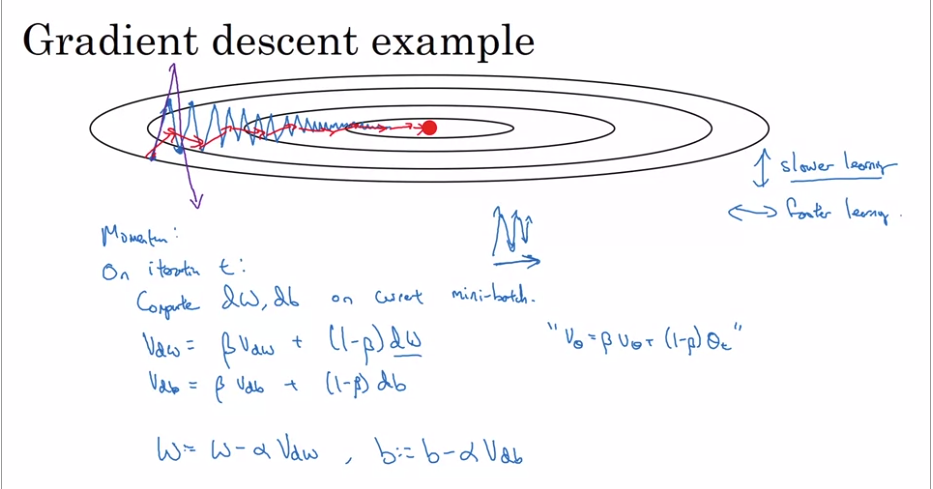 Gradient descent example
slower learning
faster learning.
Momentum:
On iteration t:
Compute dW, db on current mini-batch.
Vdw = β Vdw + (1-β) dW
"Vθ = β Vθ + (1-β) θt"
Vdb = β Vdb + (1-β) db
W := W - α Vdw , b := b - α Vdb